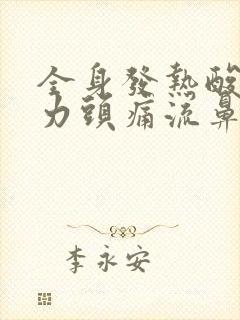 全身發熱酸
力頭痛流鼻
李永安